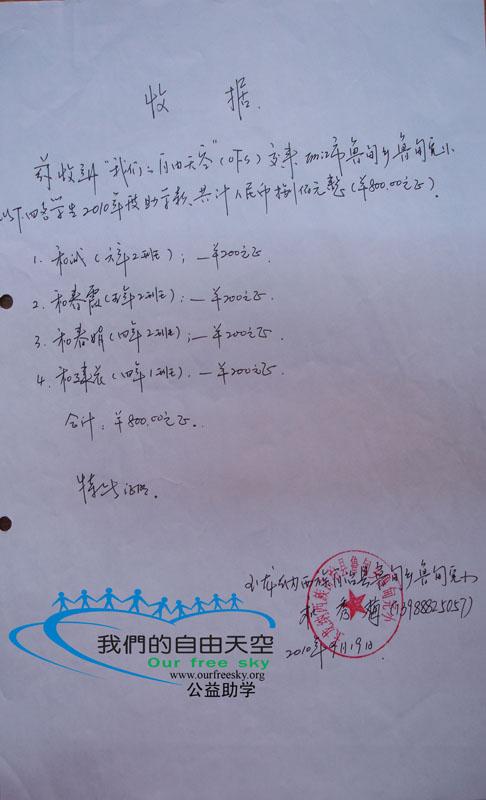 收据
兹收到"我们的自由天空"(OFS)交来 丽江市鲁甸乡鲁甸完小
以下四名学生2010年度助学款,共计人民币捌佰元整(¥800.00元正).
1. 和成(六年2班);—¥200元正.
2. 和春霞(五年2班):—¥200元正.
3. 和春娟(四年2班);—¥200元正.
4. 和 (四年1班).—¥200元正.
合计:¥800.00元正.
特此证明.
玉龙纳西族自治县鲁甸乡鲁甸完小
秀梅(13988825057)
2010年 月19日.
我們的自由天空
Our free sky
www.ourfreesky.org
公益助学